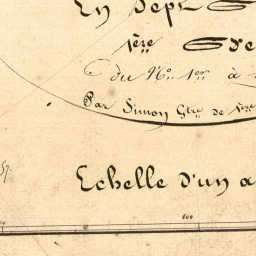 En Sept
1ère
du N°. 1er à
Par Simon Gtre de 1ère
57.
Echelle d'un a
100